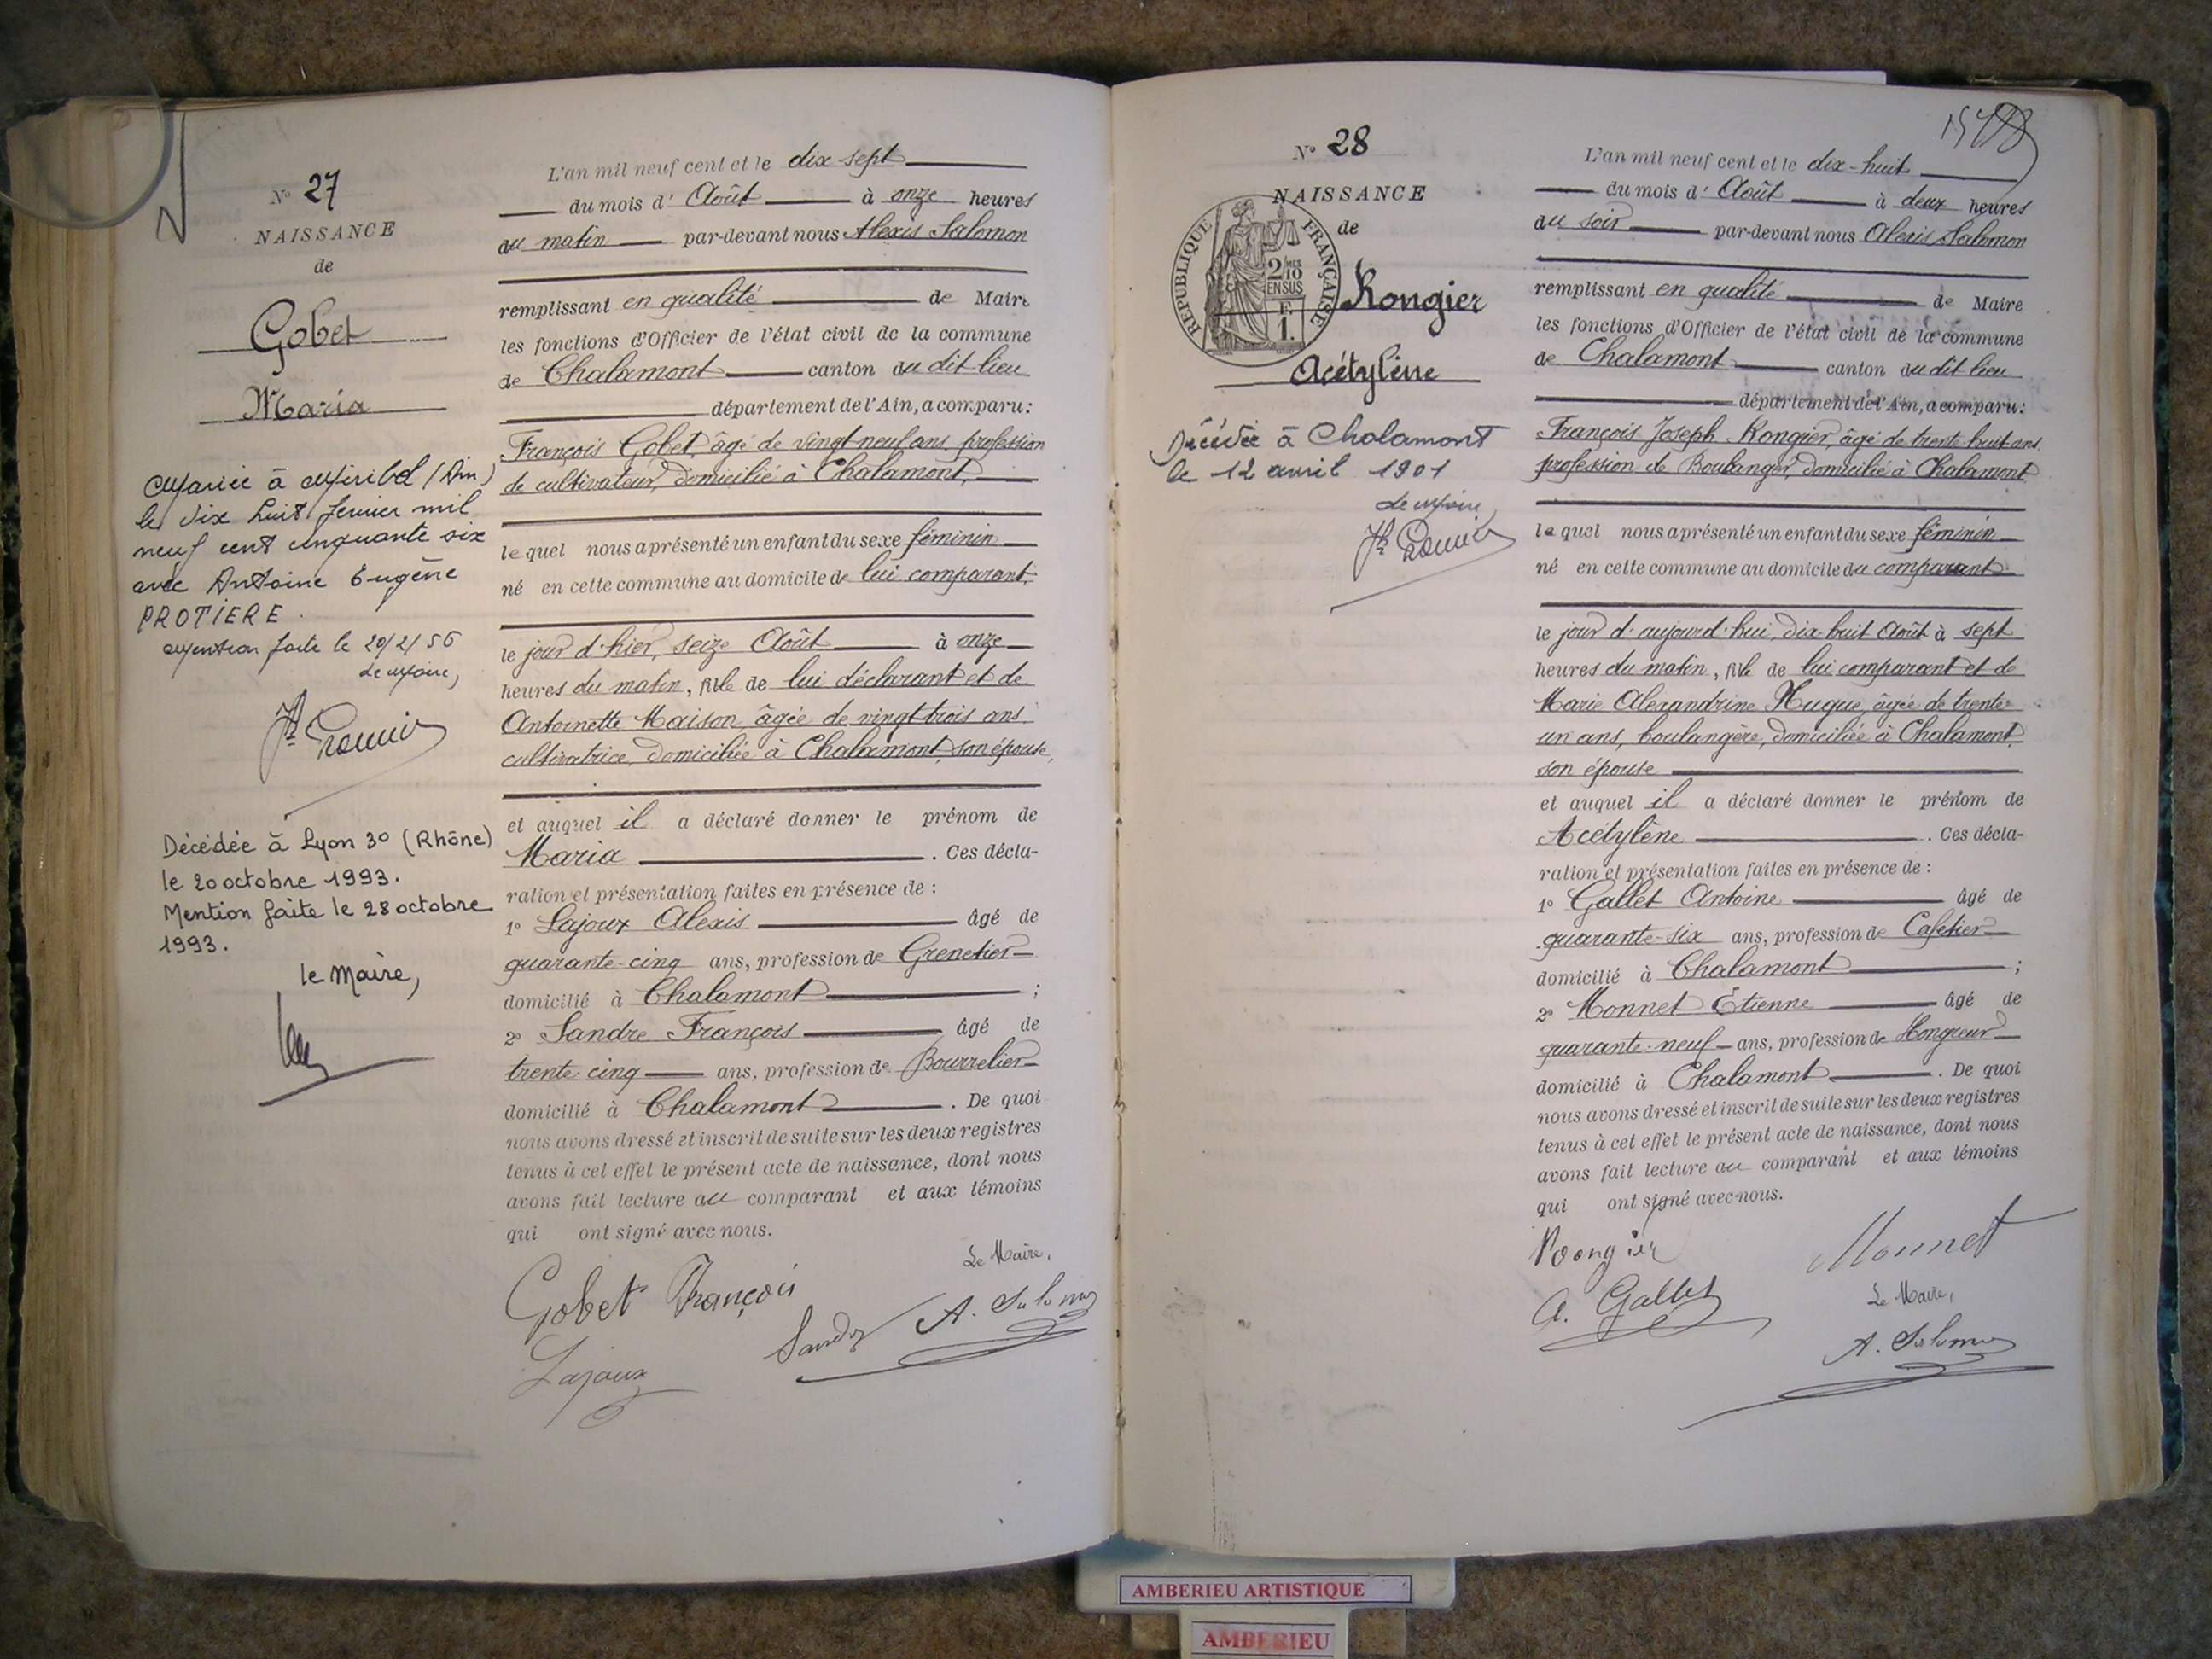 N° 27
NAISSANCE
de
Gobet
Maria
Mariée à Miribel (Ain)
le dix huit février mil
neuf cent cinquante six
avec Antoine Eugène
PROTIERE.
Mention faite le 20/2/56
Le Maire,
Décédée à Lyon 3e (Rhône)
le 20 octobre 1993.
Mention faite le 28 octobre
1993.
le Maire,
L'an mil neuf cent et le dix-sept
du mois d' Août à onze heures
du matin par-devant nous Alexis Salomon
remplissant en qualité de Maire
les fonctions d'Officier de l'état civil de la commune
de Chalamont canton du dit lieu
département de l'Ain, a comparu:
François Gobet, âgé de vingt neuf ans, profession
de cultivateur, domicilié à Chalamont,
le quel nous a présenté un enfant du sexe féminin
né en cette commune au domicile de lui comparant,
le jour d'hier, seize Août à onze
heures du matin, fille de lui déclarant et de
Antoinette Maison, âgée de vingt trois ans,
cultivatrice, domiciliée à Chalamont, son épouse,
et auquel il a déclaré donner le prénom de
Maria . Ces décla-
ration et présentation faites en présence de :
1° Lajoux Alexis âgé de
quarante-cinq ans, profession de Grenetier
domicilié à Chalamont ;
2° Sandre François âgé de
trente-cinq ans, profession de Bourrelier
domicilié à Chalamont . De quoi
nous avons dressé et inscrit de suite sur les deux registres
tenus à cet effet le présent acte de naissance, dont nous
avons fait lecture au comparant et aux témoins
qui ont signé avec nous.
Le Maire,
Gobet François
Sandre A. Salomon
Lajoux
N° 28
NAISSANCE
de
REPUBLIQUE FRANÇAISE
2/10 MES
EN SUS
F.
1.
Rongier
Acétylène
Décédée à Chalamont
le 12 avril 1901
Le Maire,
L'an mil neuf cent et le dix-huit
du mois d' Août à deux heures
du soir par-devant nous Alexis Salomon
remplissant en qualité de Maire
les fonctions d'Officier de l'état civil de la commune
de Chalamont canton du dit lieu
département de l'Ain, a comparu:
François Joseph Rongier, âgé de trente huit ans,
profession de Boulanger, domicilié à Chalamont
le quel nous a présenté un enfant du sexe féminin
né en cette commune au domicile du comparant
le jour d'aujourd'hui, dix-huit Août à sept
heures du matin, fille de lui comparant et de
Marie Alexandrine Hugue, âgée de trente-
un ans, boulangère, domiciliée à Chalamont,
son épouse
et auquel il a déclaré donner le prénom de
Acétylène . Ces décla-
ration et présentation faites en présence de :
1° Gallet Antoine âgé de
quarante-six ans, profession de Cafetier
domicilié à Chalamont ;
2° Monnet Etienne âgé de
quarante-neuf ans, profession de Hongreur
domicilié à Chalamont . De quoi
nous avons dressé et inscrit de suite sur les deux registres
tenus à cet effet le présent acte de naissance, dont nous
avons fait lecture au comparant et aux témoins
qui ont signé avec nous.
Rongier Monnet
A. Gallet
Le Maire,
A. Salomon
AMBERIEU ARTISTIQUE
AMBERIEU